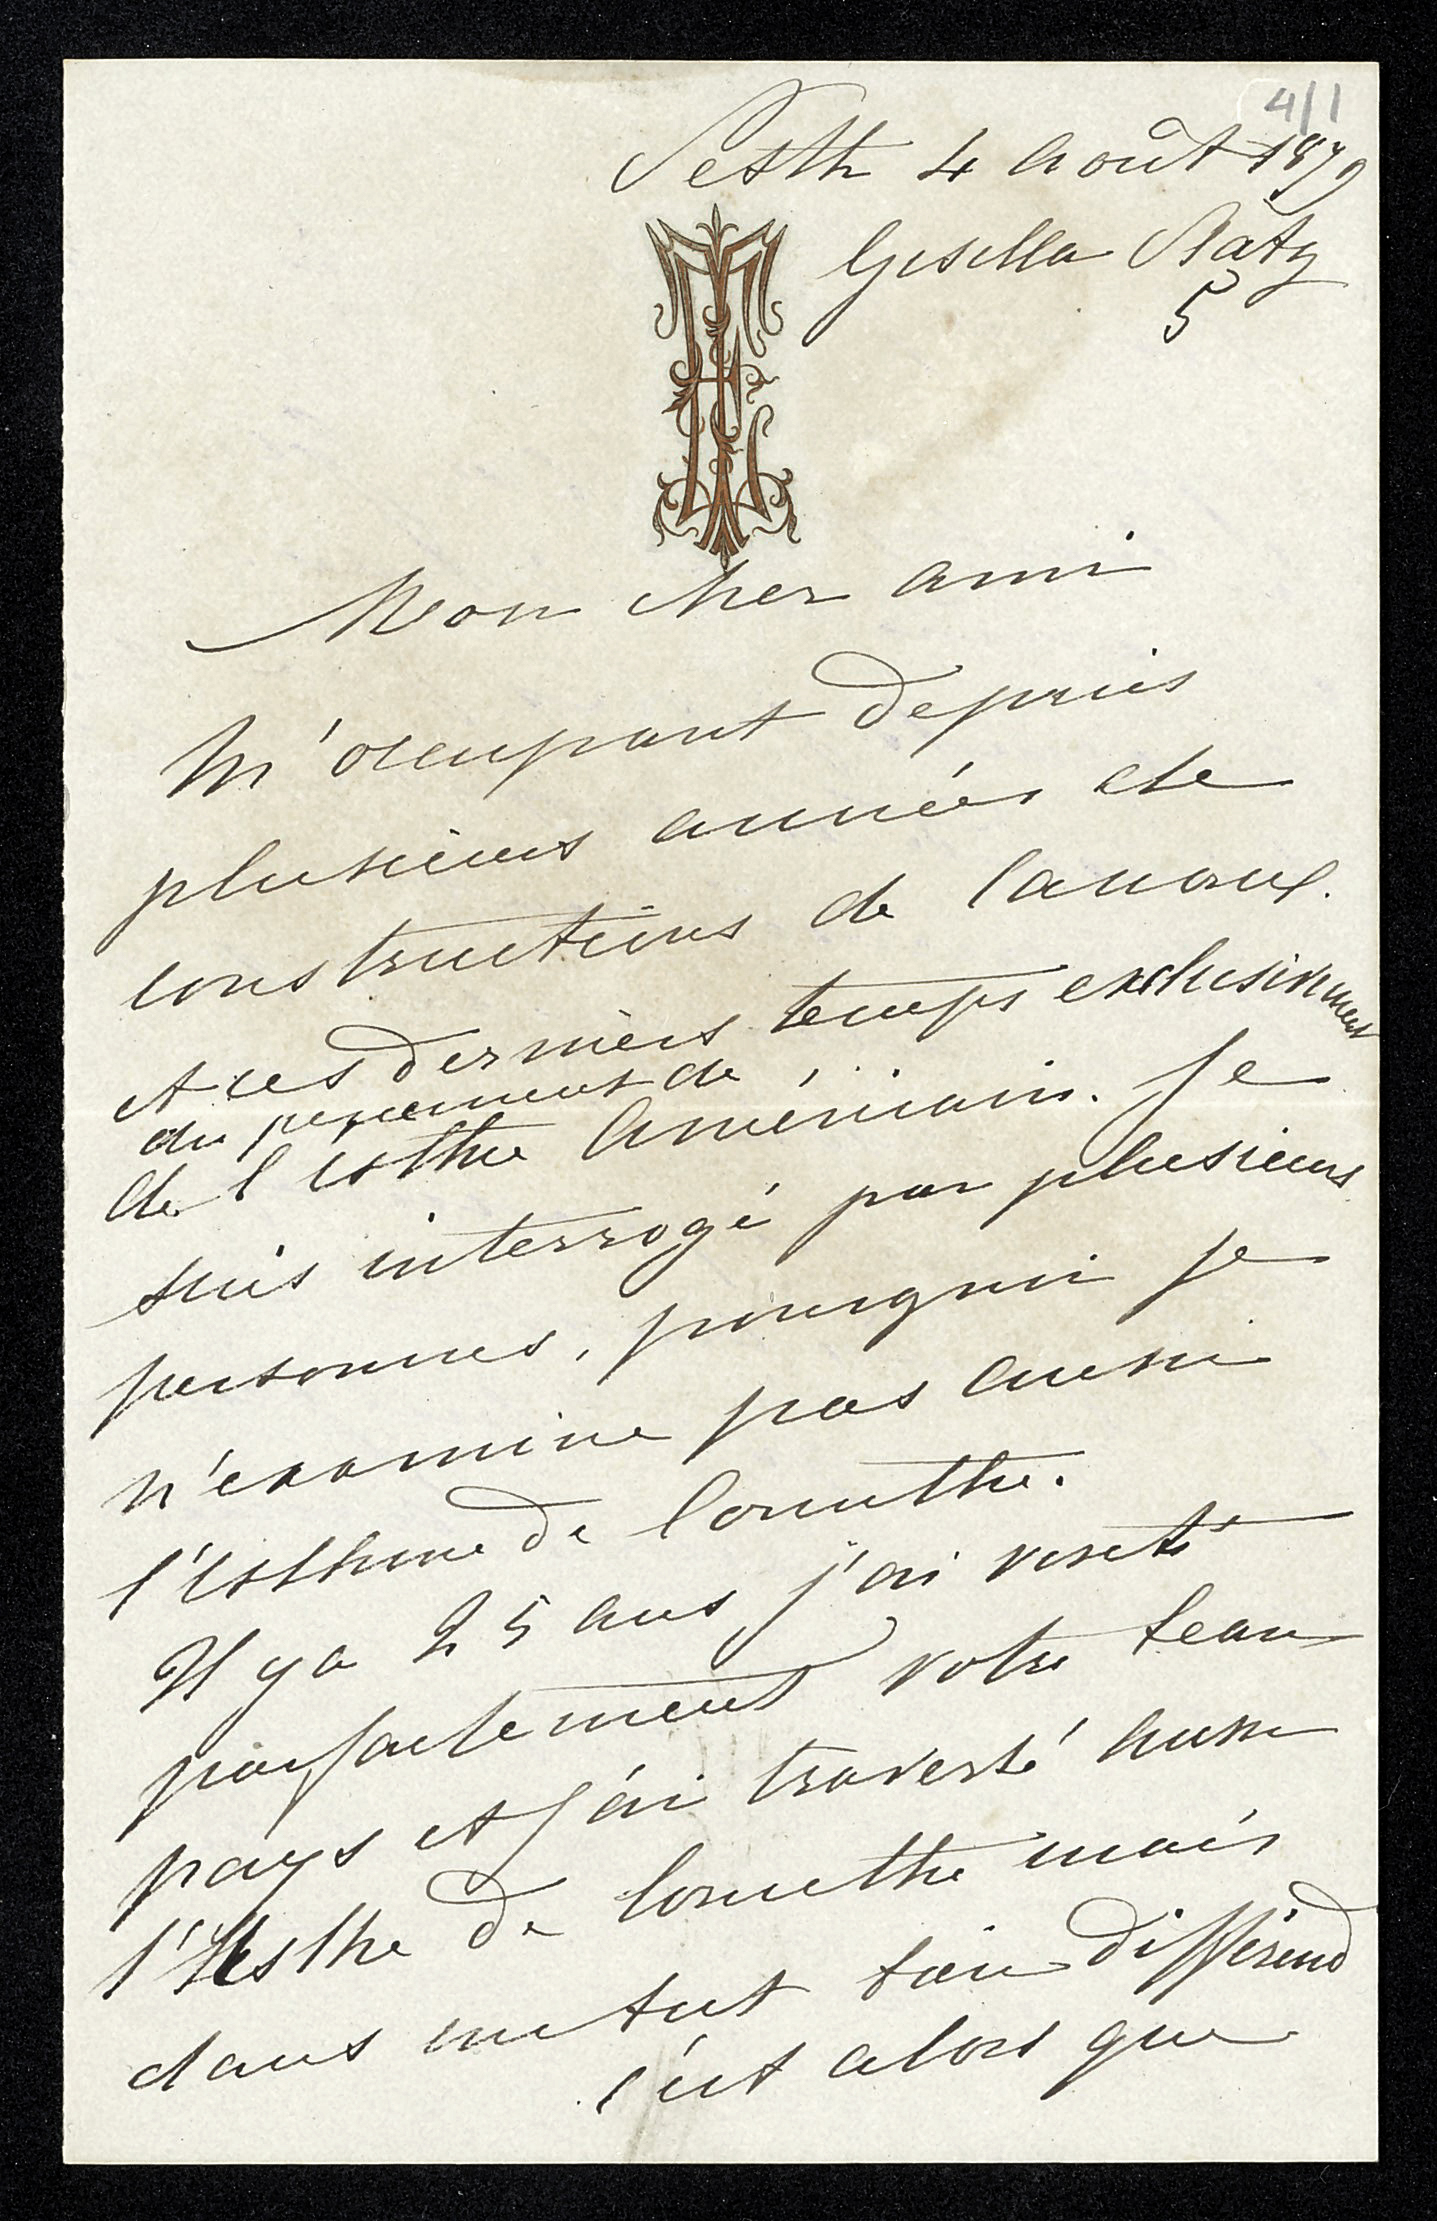 4/1
Pesth 4 Août 1879
Gisella Platz
5
Mon cher ami
M'occupant depuis
plusieurs années de
constructions de Canaux.
et ces derniers temps exclusivement
du percement de
de l'isthe Américain. Je
suis interrogé par plusieurs
personnes, pourquoi je
n'examine pas aussi
l'isthme de Corinthe.
Il y a 25 ans j'ai visité
parfaitement votre beau
pays et j'ai traversé aussi
l'Isthe de Corinthe mais
dans un but bien différend
c'est alors que